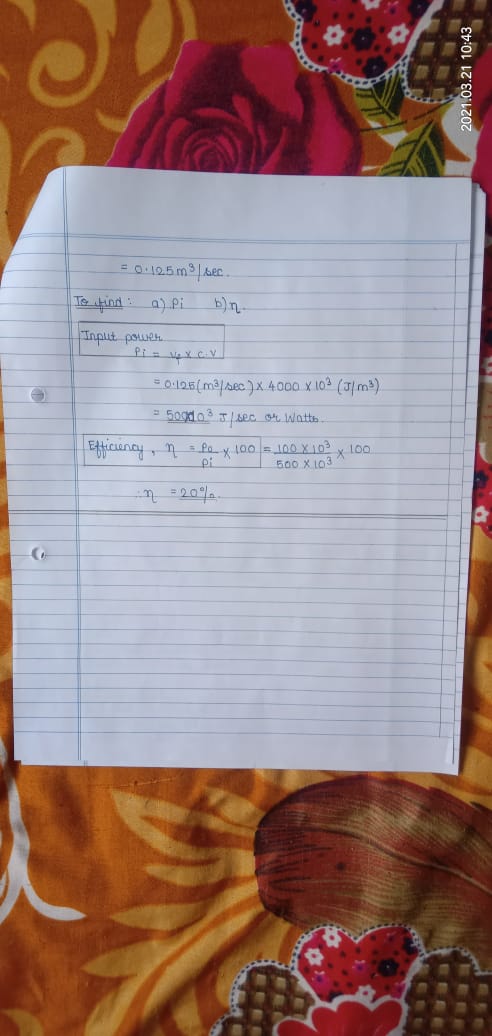 2021.03.21 10:43
= 0.125 m³/sec.
To find : a) Pi b) η.
Input power
Pi = Vf × C.V
= 0.125 (m³/sec) × 4000 × 10³ (J/m³)
= J/sec or Watts.
Efficiency, η = Po/Pi × 100 = 100 × 10³/500 × 10³ × 100
∴ η = 20%.